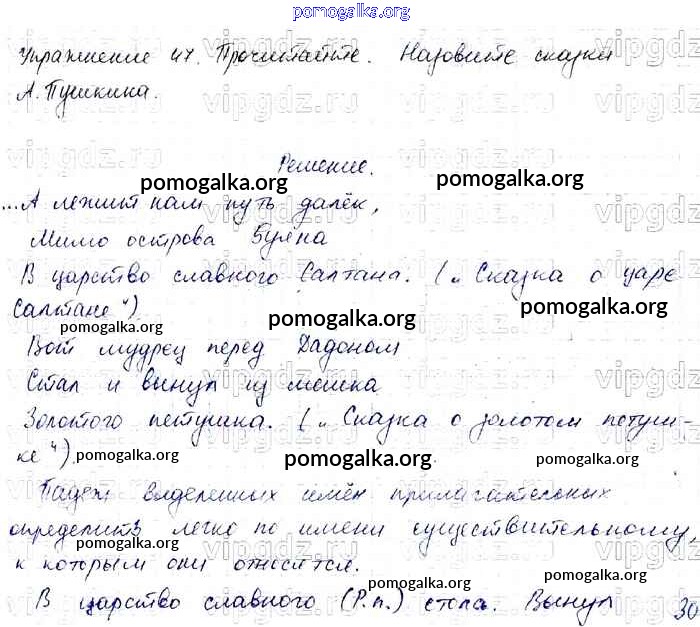 pomogalka.org
Упражнение 47. Прочитайте. Назовите сказки
А. Пушкина.
Решение.
pomogalka.org pomogalka.org
...А лежит нам путь далёк,
Мимо острова Буяна
В царство славного Салтана. („Сказка о царе
Салтане“)
pomogalka.org pomogalka.org pomogalka.org
Вот мудрец перед Дадоном
Стал и вынул из мешка
Золотого петушка. („Сказка о золотом петуш-
ке“).
pomogalka.org pomogalka.org pomogalka.org
Падеж выделенных имён прилагательных
определить легко по имени существительному,
pomogalka.org pomogalka.org
к которым они относятся.
pomogalka.org pomogalka.org
В царство славного (Р.п.) Вынул зо